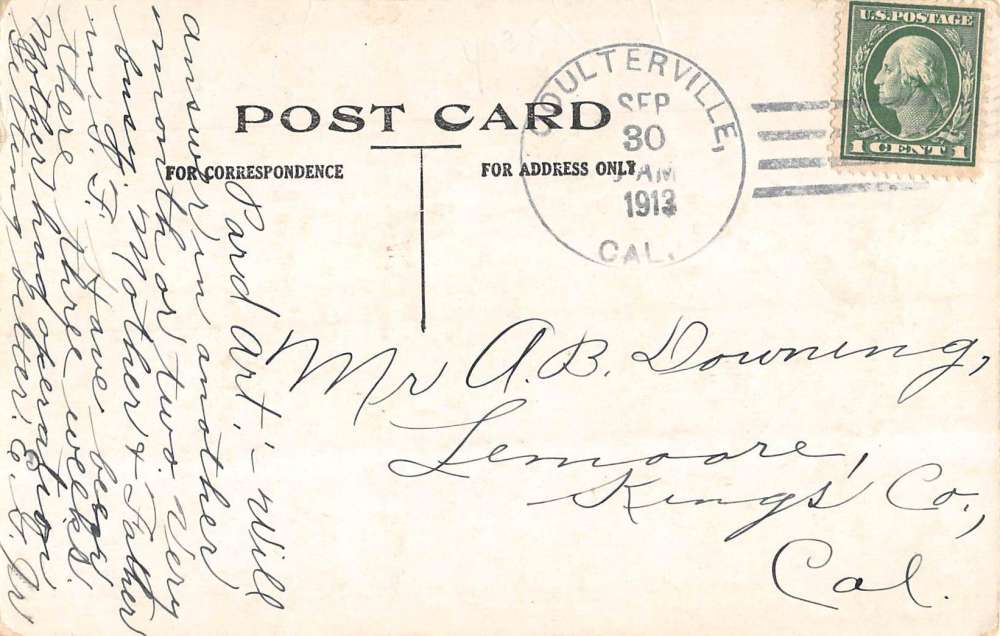 POST CARD
FOR CORRESPONDENCE
FOR ADDRESS ONLY
COULTERVILLE,
SEP
30
AM
1913
CAL.
U.S. POSTAGE
1 CENT 1
Pard Art,- Will
answer in another
month or two. Very
busy. Mother & Father
in S. F. Have been
there three weeks.
Mother had operation
Getting better.
Mr A. B. Downing,
Lemoore,
Kings Co.,
Cal.